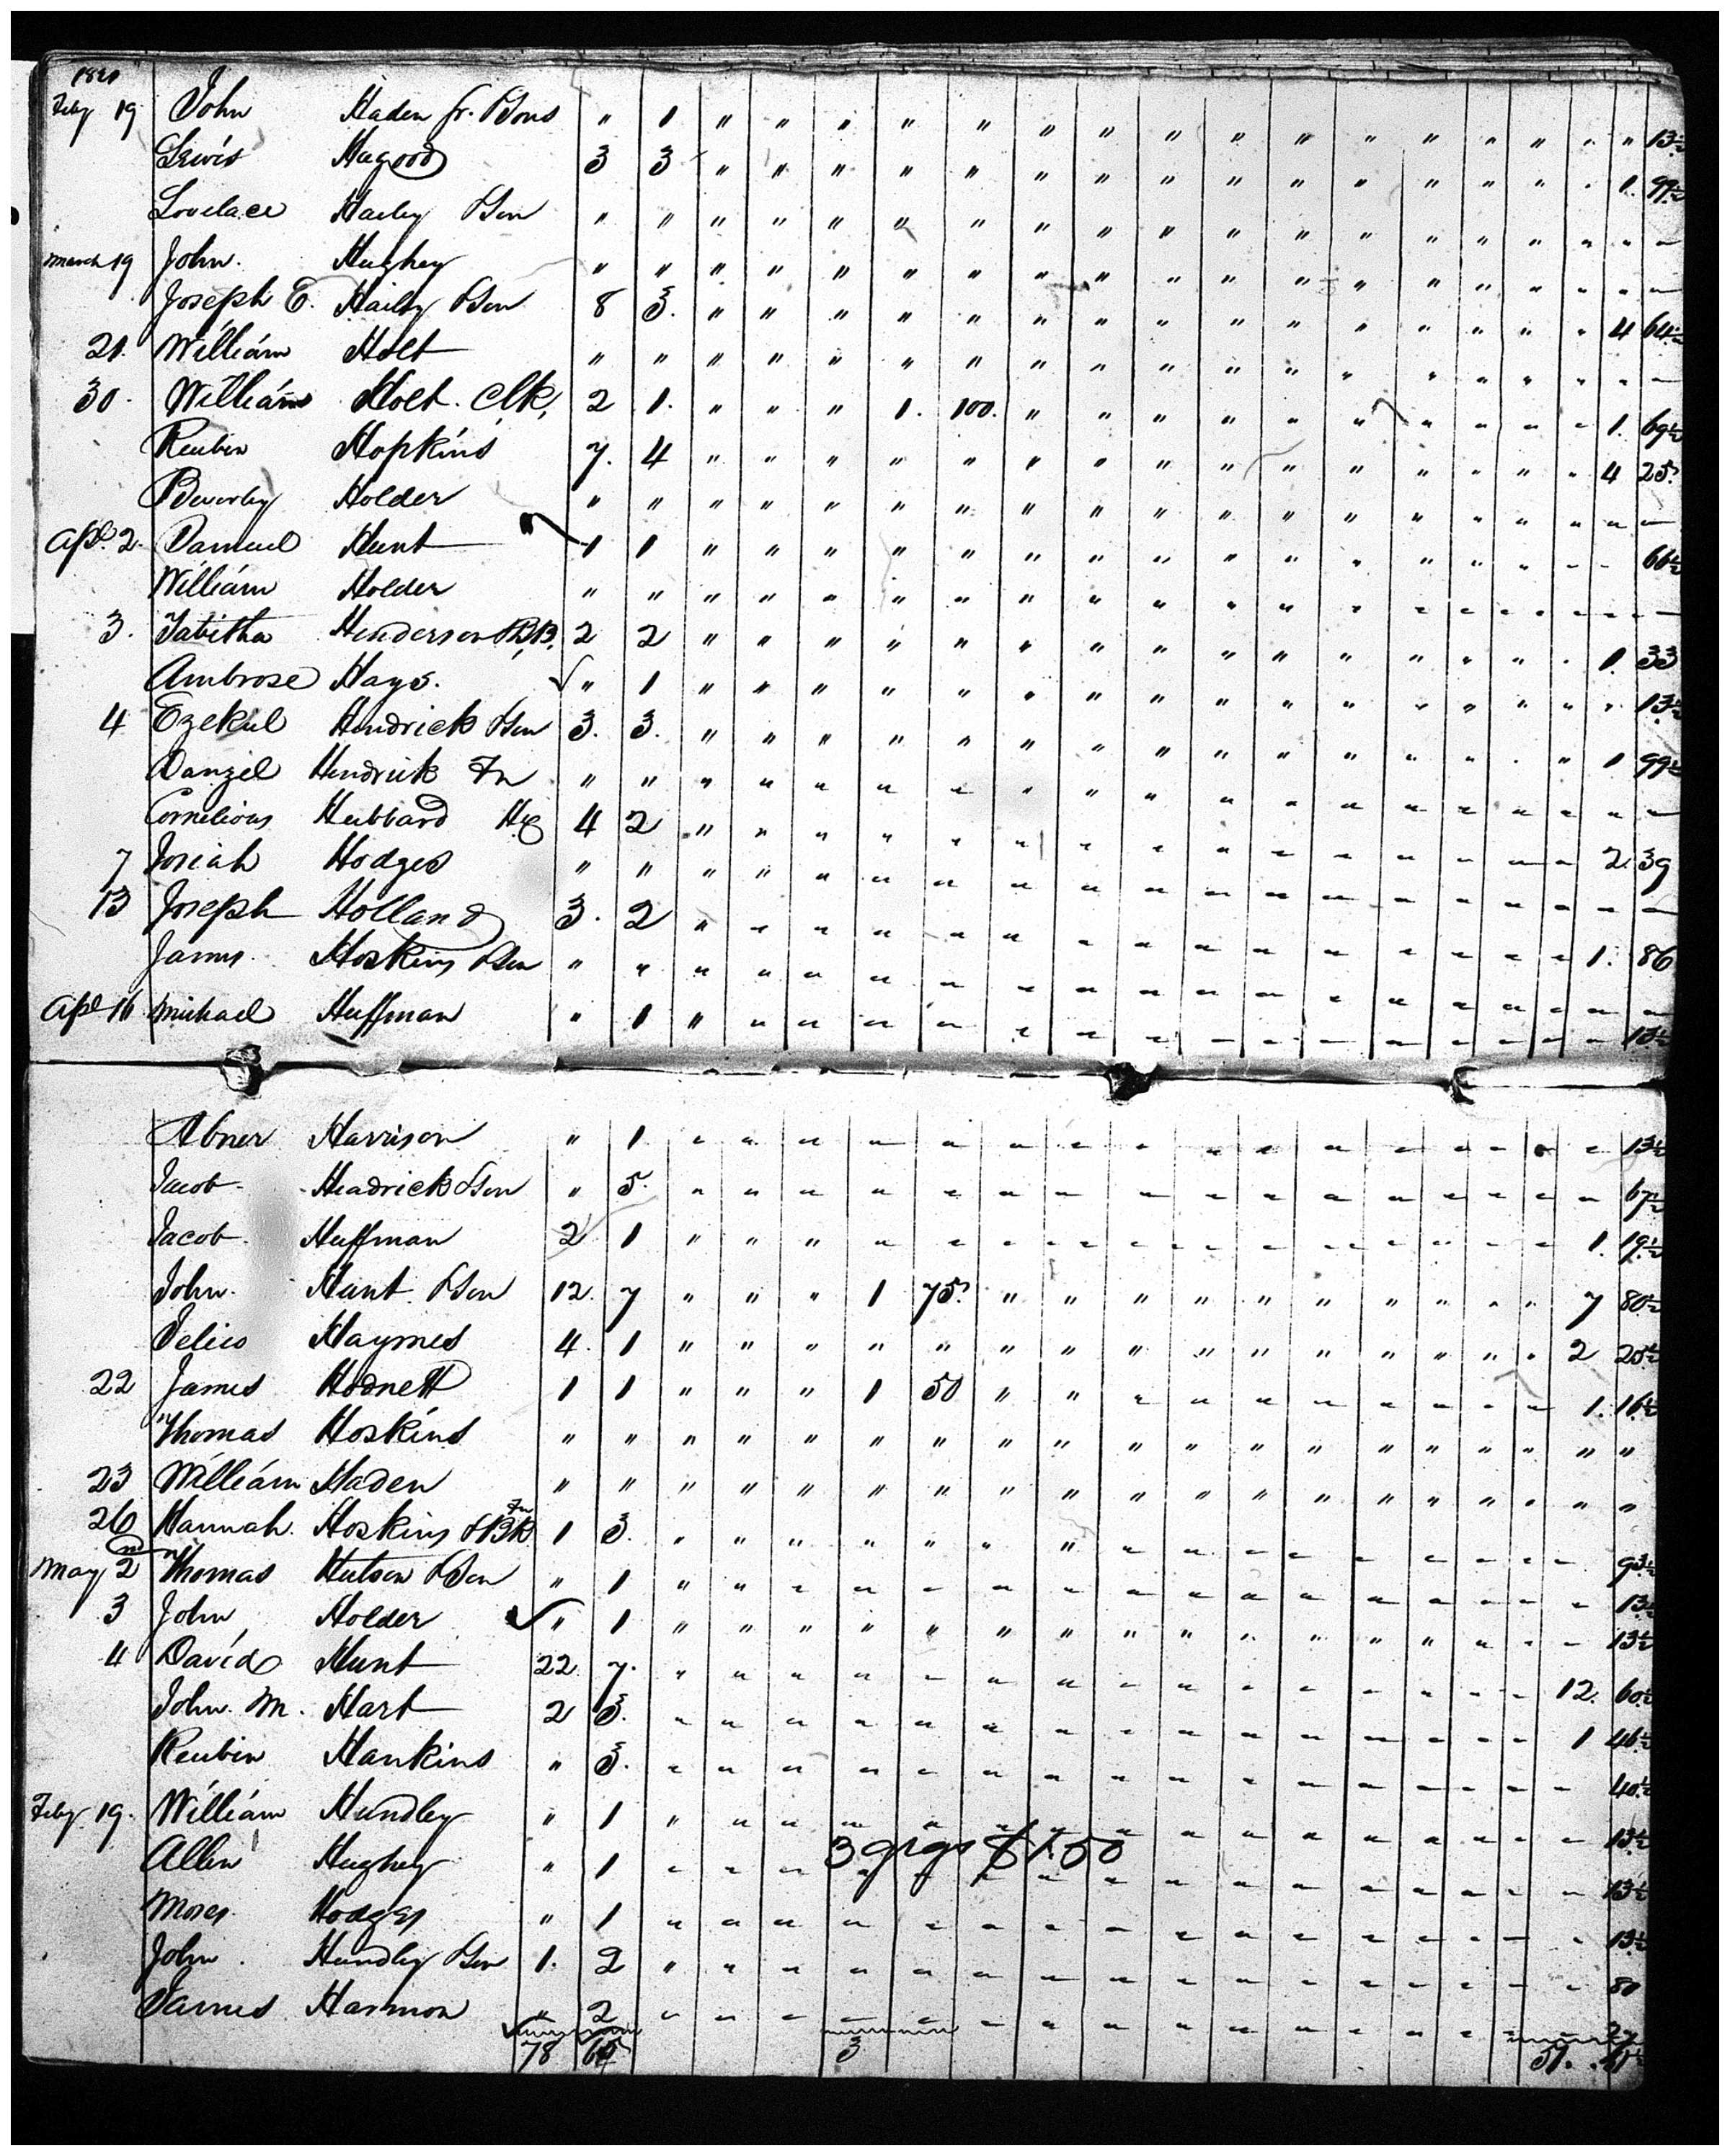 1821
Feby 19 John Haden Jr. BSons " 1 " " " " " " " " " " " " " " " " 13½
Lewis Hagood 3 3 " " " " " " " " " " " " " " " 1. 99½
Lovelace Hailey BSen " " " " " " " " " " " " " " " " " " –
March 19 John. Hughey " " " " " " " " " " " " " " " " " " –
Joseph E. Hailey BSen 8 3. " " " " " " " " " " " " " " " 4 64½
21. William Holt " " " " " " " " " " " " " " " " " " –
30. William Holt. Clk, 2 1. " " " 1. 100. " " " " " " " " " " 1. 69½
Reuben Hopkins 7. 4 " " " " " " " " " " " " " " " 4 25.
Beverley Holder " " " " " " " " " " " " " " " " " " –
Apl. 2. Samuel Hunt 1 1 " " " " " " " " " " " " " " – – 66½
William Holder " " " " " " " " " " " " " – – – – – –
3. Tabitha Henderson 2 2 " " " " " " " " " " " " " " " 1. 33
Ambrose Hays. √ " 1 " " " " " " " " " " " " " " " " 13½
4 Ezekiel Hendrick BSen 3. 3. " " " " " " " " " " " " " " " 1 99½
Daniel Hendrick " " " " " " " " " " " " " " " " " " –
Cornelious Hubbard 4 2 " " " " " " " " " " " " " – – 2. 39
7 Josiah Hodges " " " " " " " " " " " " " " " " " – –
13 Joseph Holland 3. 2 " " " " " " " " " " " " " – – 1. 86
James. Hoskins BSen " " " " " " " " " " " " " " " " – – –
Apl 16 Michael Huffman " 1 " " " " " – – – – – – – – – – – 13½
Abner Harrison " 1 – " " – " " – – – – – – – – – – 13½
Jacob Headrick BSen " 5. " " " " – – – – – – – – – – – – 67½
Jacob. Huffman 2 1 " " " – – – – – – – – – – – – 1. 19½
John. Hunt. BSen 12. 7 " " " 1 75. " " " " " " " " " " 7 80½
Haymes 4. 1 " " " " " " " " " " " " " " " 2 20½
22 James Hodnett 1 1 " " " 1 50 " " – – – – – – – – 1. 16½
Thomas Hoskins " " " " " " " " " " " " " " " " " " "
23 William Haden " " " " " " " " " " " " " " " " " " "
26 Hannah. Hoskins 1 3. " " " " " " " – – – – – – – – – 93½
May 2 Thomas Hutson BSen " 1 " " – – – – – – – – – – – – – – 13½
3 John Holder √ " 1 " " " " " " " " " " " " " " – – 13½
4 David Hunt 22 7. " " " " – " " – – – – – – – – 12. 60½
John. M. Hart 2 3. – " " " " " – – – – – – – – – 1 46½
Reubin Hankins " 3. – " " " – – – – – – – – – – – – 40½
Feby 19. William Hundley " 1 " " " – " " – – – – – – – – – – 13½
3 gigs $1.50
Allen Hughey " 1 – – – – – – – – – – – – – – – – 13½
Moses Hodges " 1 " " " " – – – – – – – – – – – – 13½
John. Hundley BSen 1. 2 " " " " " – – – – – – – – – – – 80
James Harmon " 2 – – – – – – – – – – – – – – – – 27
78 65 3 51. 61½